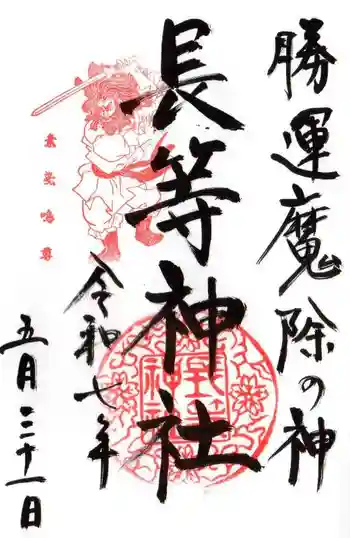 勝運魔除の神
長等神社
素盞嗚尊
令和七年
五月三十一日
長等神社